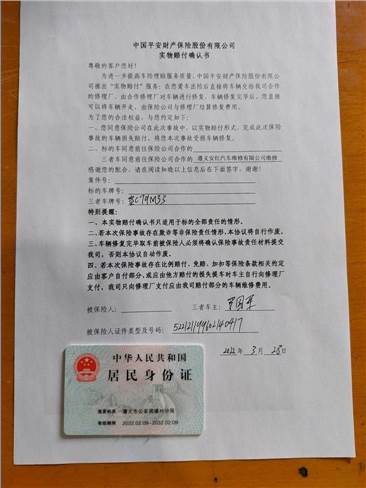 中国平安财产保险股份有限公司
实物赔付确认书
尊敬的客户您好！
为进一步提高车险理赔服务质量，中国平安财产保险股份有限公
司推出“实物赔付”服务：在您爱车出险后直接将车辆交给我司合作
的修理厂，由合作修理厂对车辆进行修复，车辆修复完毕后，您直接
可以将车辆开走，由保险公司与修理厂结算修复费用。
为了您的合法权益，与您约定如下：
一、您同意保险公司在此次事故中，以实物赔付形式，完成此次保险
事故的车辆损失赔偿，将本次您爱车损坏车辆修复。
二、标的车同意前往保险公司合作的
三者车同意前往保险公司合作的 遵义安红汽车维修有限公司维修
感谢您的配合，请在阅读如晚以上信息后在下面签字，谢谢！
案件号：
标的车牌号：
三者车牌号：
特别提醒：
一、本实物赔付确认书只适用于标的全部责任的情形。
二、若本次保险事故存在欺诈等非保险责任情形，本协议将自行作废。
三、车辆修复完毕取车前被保险人必须将确认保险事故责任材料提交
我司，否则本协议自动作废。
四、若本次保险事故存在比例赔付、免赔、加扣等保险条款相关约定
应由客户自付部分，或应由他方赔付的损失我车对车主自行向修理厂
支付，我司只向修理厂支付应由我司赔付部分的车辆维修费用。
被保险人：
三者车主：
被保险人证件类型及号码：
2022年 3月 28日
中华人民共和国
居民身份证
签发机关 遵义市公安局播州分局
有效期限 2022.02.09-2032.02.09